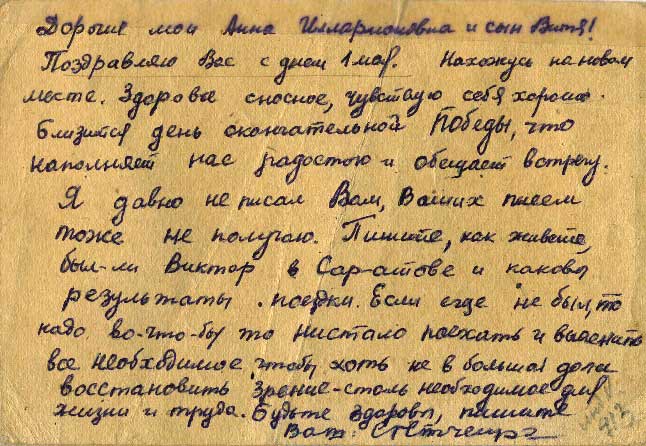 Дорогие мои Анна Илларионовна и сын Витя!
Поздравляю Вас с днем 1 мая. Нахожусь на новом
месте. Здоровье сносное, чувствую себя хорошо.
Близится день окончательной Победы, что
наполняет нас радостью и обещает встречу.
Я давно не писал Вам, Ваших писем
тоже не получаю. Пишите, как живете,
был-ли Виктор в Саратове и каковы
результаты поездки. Если еще не был, то
надо во-что-бы то нистало поехать и выяснить
все необходимое, чтобы хоть не в большой доле
восстановить зрение-столь необходимое для
жизни и труда. Будьте здоровы, пишите
Ваш: